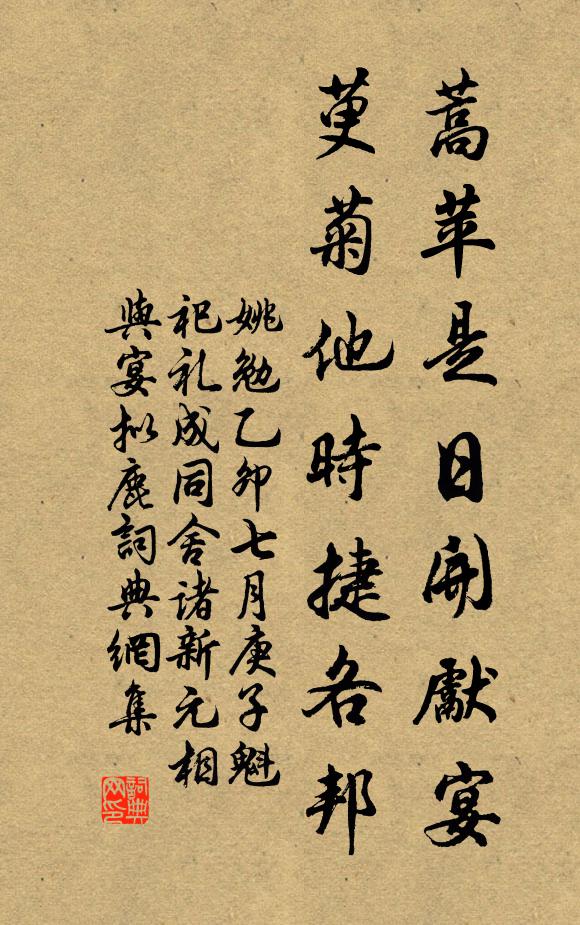 蒿苹是日開獻宴
萸菊他時捷各邦
姚勉乙卯七月庚子魁
祀礼成同舍诸新元相
與宴拟鹿詞典網集
詞典
网印